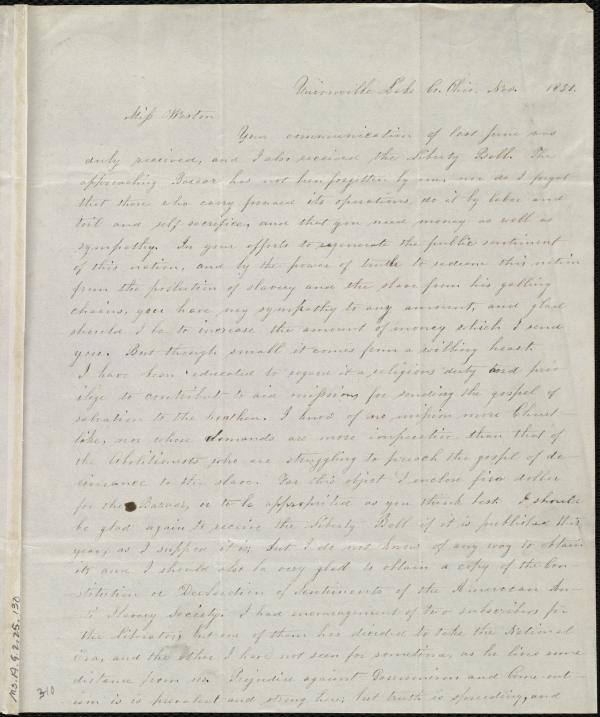 Unionville Lake Co. Ohio. Nov. 1851.
Miss Weston
Your communication of last June was
duly received, and I also received the Liberty Bell. The
approaching Bazaar has not been forgotten by me, nor do I forget
that those who carry forward its operations, do it by labor and
toil and self-sacrifice, and that you need money as well as
sympathy. In your efforts to regenerate the public sentiment
of this nation, and by the power of truth to redeem this nation
from the pollution of slavery and the slave from his galling
chains, you have my sympathy to any amount, and glad
should I be to increase the amount of money which I send
you. But though small it comes from a willing heart.
I have been educated to regard it a religious duty and priv-
ilege to contribute to aid missions for sending the gospel of
salvation to the heathen. I know of no mission more Christ-
like, nor whose demands are more imperative than that of
the Abolitionists who are struggling to preach the gospel of de-
liverance to the slave. For this object I enclose five dollars
for the Bazaar, or to be appropriated as you think best. I should
be glad again to receive the Liberty Bell if it is published this
year, as I suppose it is, but I do not know of any way to obtain
it, and I should also be very glad to obtain a copy of the Con-
stitution or Declaration of Sentiments of the American An-
ti Slavery Society. I had encouragement of two subscribers for
the Liberator, but one of them has decided to take the National
Era, and the other I have not seen for sometime, as he lives some
distance from us. Prejudice against Garrisonism and Come-out-
ism is prevalent and strong here, but truth is spreading, and
Ms.A.9.2.25.130
310